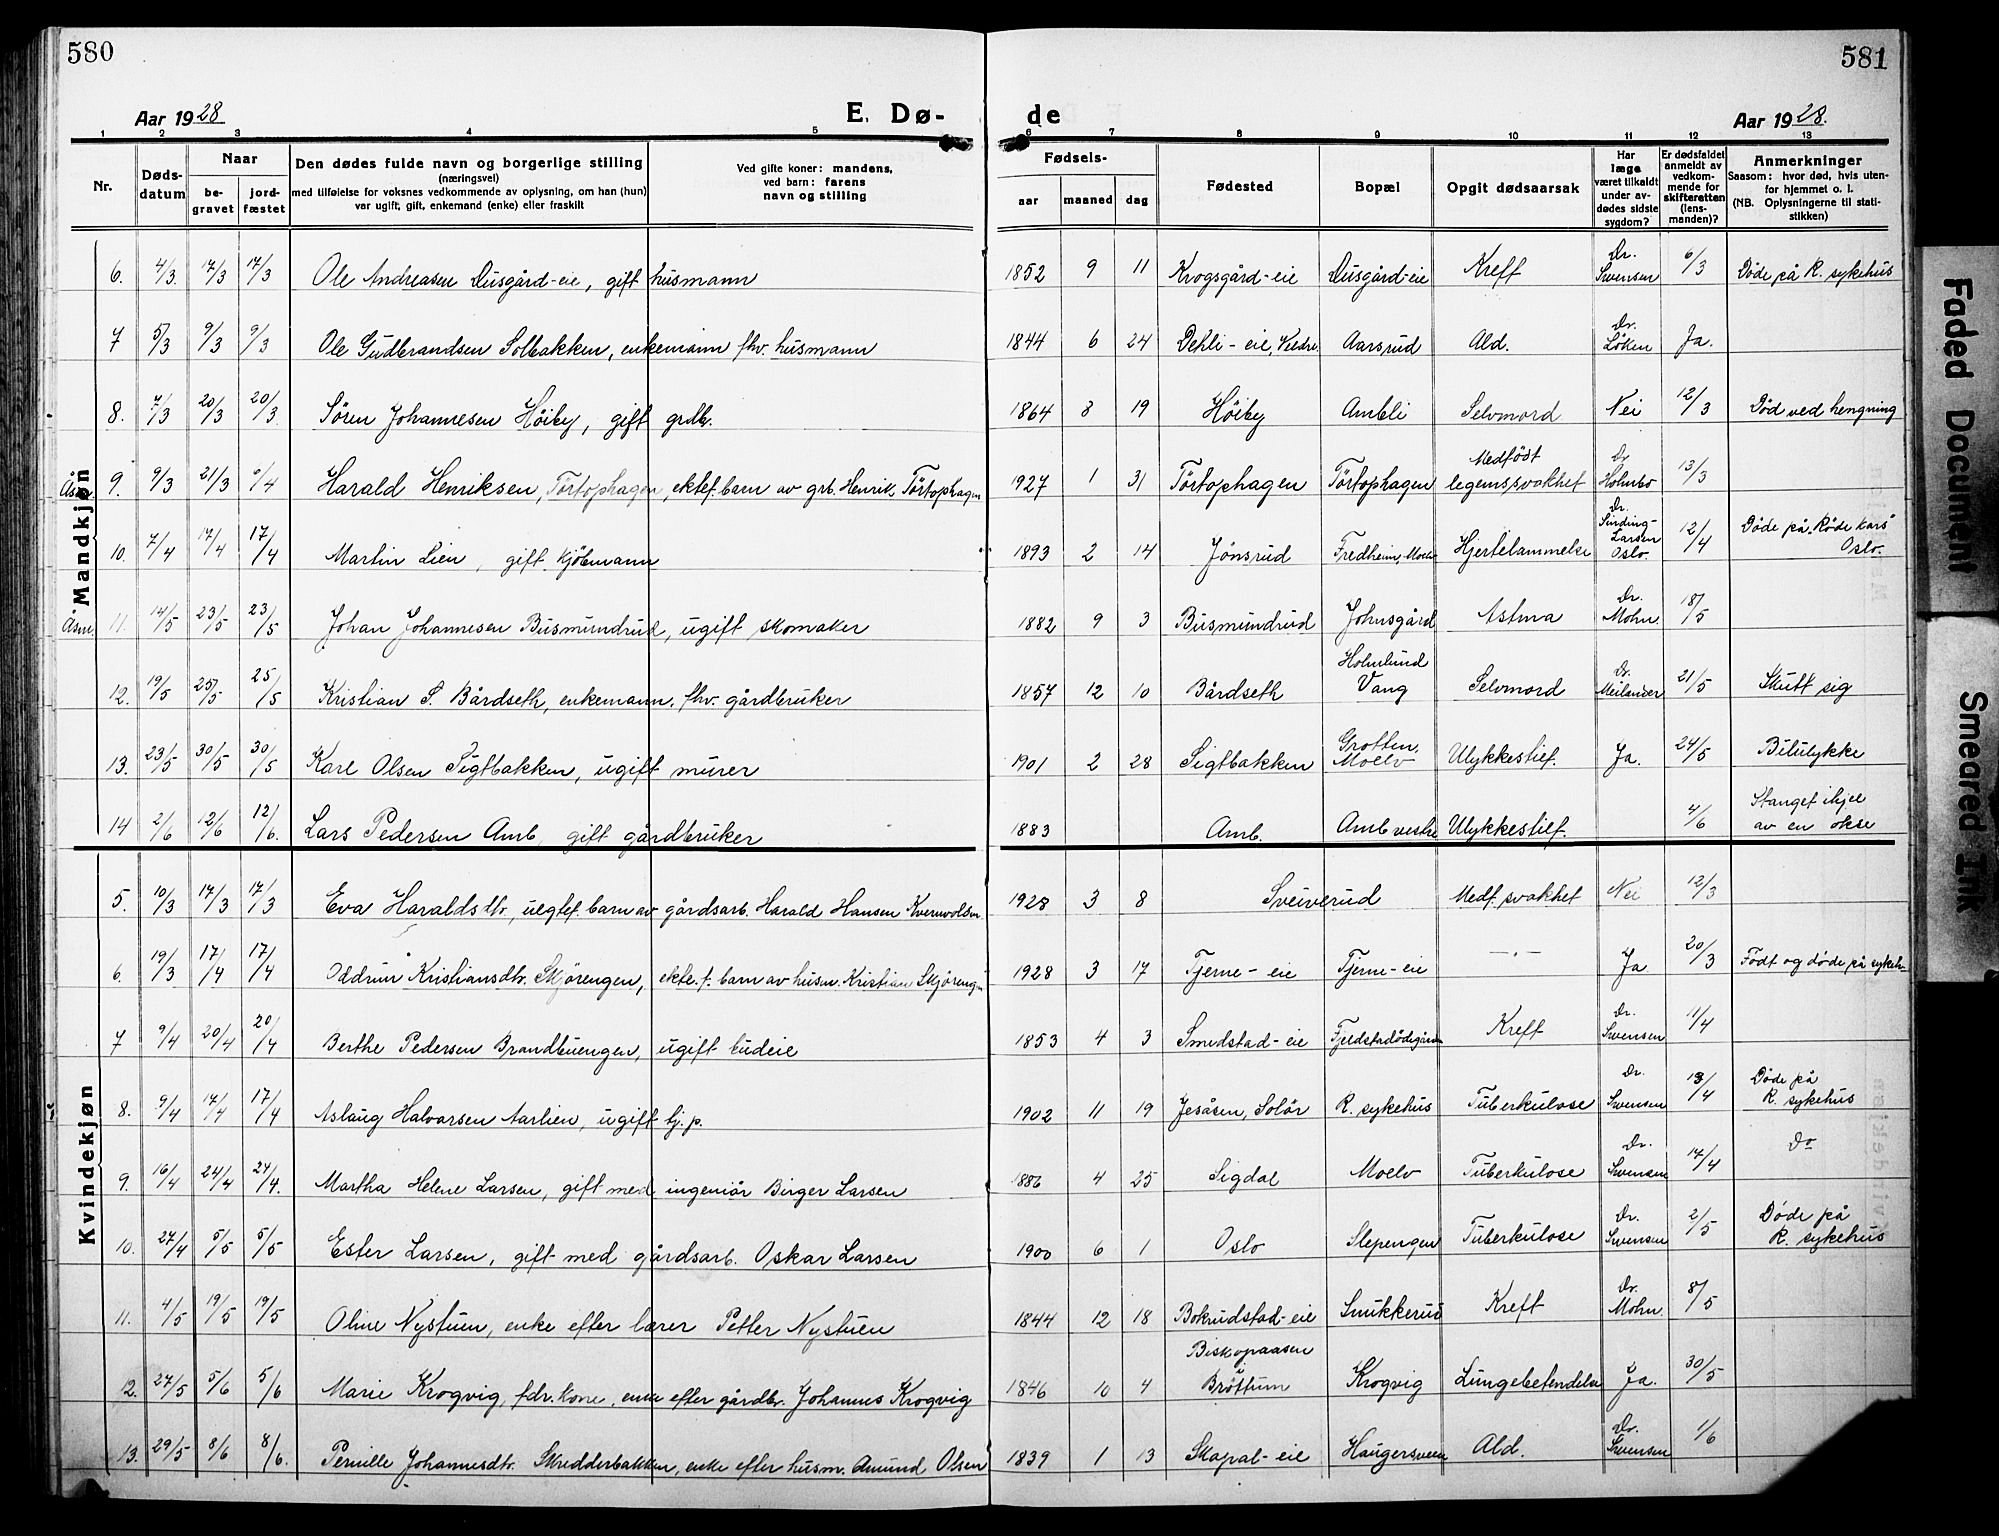 580
581
Aar 1928
E. Dø-
de
Aar 1928.
1 2 3 4 5 6 7 8 9 10 11 12 13
Nr.
Døds-
datum
Naar
be-
gravet
jord-
fæstet
Den dødes fulde navn og borgerlige stilling
(næringsvei)
med tilføielse for voksnes vedkommende av oplysning, om han (hun)
var ugift, gift, enkemand (enke) eller fraskilt
Ved gifte koner: mandens,
ved barn: farens
navn og stilling
Fødsels-
aar maaned dag
Fødested
Bopæl
Opgit dødsaarsak
Har
læge
været tilkaldt
under av-
dødes sidste
sygdom?
Er dødsfaldet
anmeldt av
vedkom-
mende for
skifteretten
(lens-
manden)?
Anmerkninger
Saasom: hvor død, hvis uten-
for hjemmet o. l.
(NB. Oplysningerne til stati-
stikken)
Mandkjøn
6. 4/3. 17/3 17/3 Ole Andreasen Dusgård-eie, gift husmann 1852 9 11 Krogsgård-eie Dusgård-eie Kreft Dr. Svensen 6/3 Døde på R. sykehus
7 5/3 9/3 9/3 Ole Gudbrandsen Solbakken, enkemann fhv. husmann 1844 6 24 Dehli-eie, Veldre. Aarsrud Ald. Dr. Løken Ja.
8. 7/3 20/3 20/3. Sören Johannesen Höiby, gift grdbr. 1864 8 19 Höiby Ambli Selvmord Nei 12/3 Död ved hengning
Åsm. 9. 9/3 21/3 6/4 Harald Henriksen, Törtophagen, ektef. barn av grb. Henrik Törtophagen 1927 1 31 Törtophagen Törtophagen Medfödt legemssvakhet Dr Holmbo 13/3
10. 7/4 17/4 17/4 Martin Lien, gift kjöbmann 1893 2 14 Jönsrud Fredheim, Moelv Hjertelammelse Dr. Sinding-Larsen Oslo. 12/4 Døde på "Røde Kors" Oslo.
Åsm. 11. 14/5 23/5 23/5 Johan Johannesen Busmundrud, ugift skomaker 1882 9 3 Busmundrud Johnsgård Astma Dr. Mohn. 18/5
12. 19/5 25/5 25/5 Kristian S. Bårdseth, enkemann, fhv. gårdbruker 1857 12 10 Bårdseth Holmlund Vang Selvmord Dr. Meilander 21/5 Skutt sig
13. 23/5 30/5 30/5 Karl Olsen Sigtbakken, ugift murer 1901 2 28 Sigtbakken Grotten, Moelv Ulykkestilf. Ja. 24/5 Bilulykke
14 2/6 12/6 12/6. Lars Pedersen Amb, gift gårdbruker 1883 Amb. Amb vestre Ulykkestilf. 4/6 Stanget ihjel av en okse
Kvindekjøn
5. 10/3 17/3 17/3 Eva Haraldsdtr., uegtef. barn av gårdsarb. Harald Hansen Kvernvolden 1928 3 8 Sveiverud Medf. svakhet Nei 12/3
6. 19/3 17/4 17/4 Oddrun Kristiansdtr. Skjörengen, ekte.f. barn av husm. Kristian Skjörengen 1928 3 17 Tjerne-eie Tjerne-eie -"- Ja 20/3 Födt og døde på sykeh.
7 9/4 20/4 20/4 Berthe Pedersen Brandbuengen, ugift budeie 1853 4 3 Smedstad-eie Fjeldstadödegården Kreft Dr. Svensen 11/4
8. 9/4 17/4 17/4 Aslaug Halvorsen Aarlien, ugift tj. p. 1902 11 19 Jesåsen, Solör R. sykehus Tuberkulose Dr. Svensen 13/4 Döde på R. sykehus
9. 16/4 24/4 24/4. Martha Helene Larsen, gift med ingeniör Birger Larsen 1886 4 25 Sigdal Moelv Tuberkulose Dr. Svensen 17/4 Do
10. 27/4 5/5 5/5 Ester Larsen, gift med gårdsarb. Oskar Larsen 1900 6 1 Oslo Slepengen Tuberkulose Dr. Svensen 2/5 Døde på R. sykehus
11. 4/5 19/5 19/5 Oline Nystuen, enke efter lærer Petter Nystuen 1844 12 18 Bokrudstad-eie Snukkerud Kreft Dr. Mohn. 8/5
12. 27/5 5/6 5/6 Marie Krogvig, fdr.kone, enke efter gårdbr. Johannes Krogvig 1846 10 4 Biskopaasen i Bröttum Krogvig Lungebetendelse Ja. 30/5
13. 29/5 8/6 8/6. Pernille Johannesdtr. Skredderbakken, enke efter husm. Amund Olsen 1839 1 13 Skapal-eie Haugersveen Ald. Dr. Svensen 1/6
Faded Document
Smeared Ink